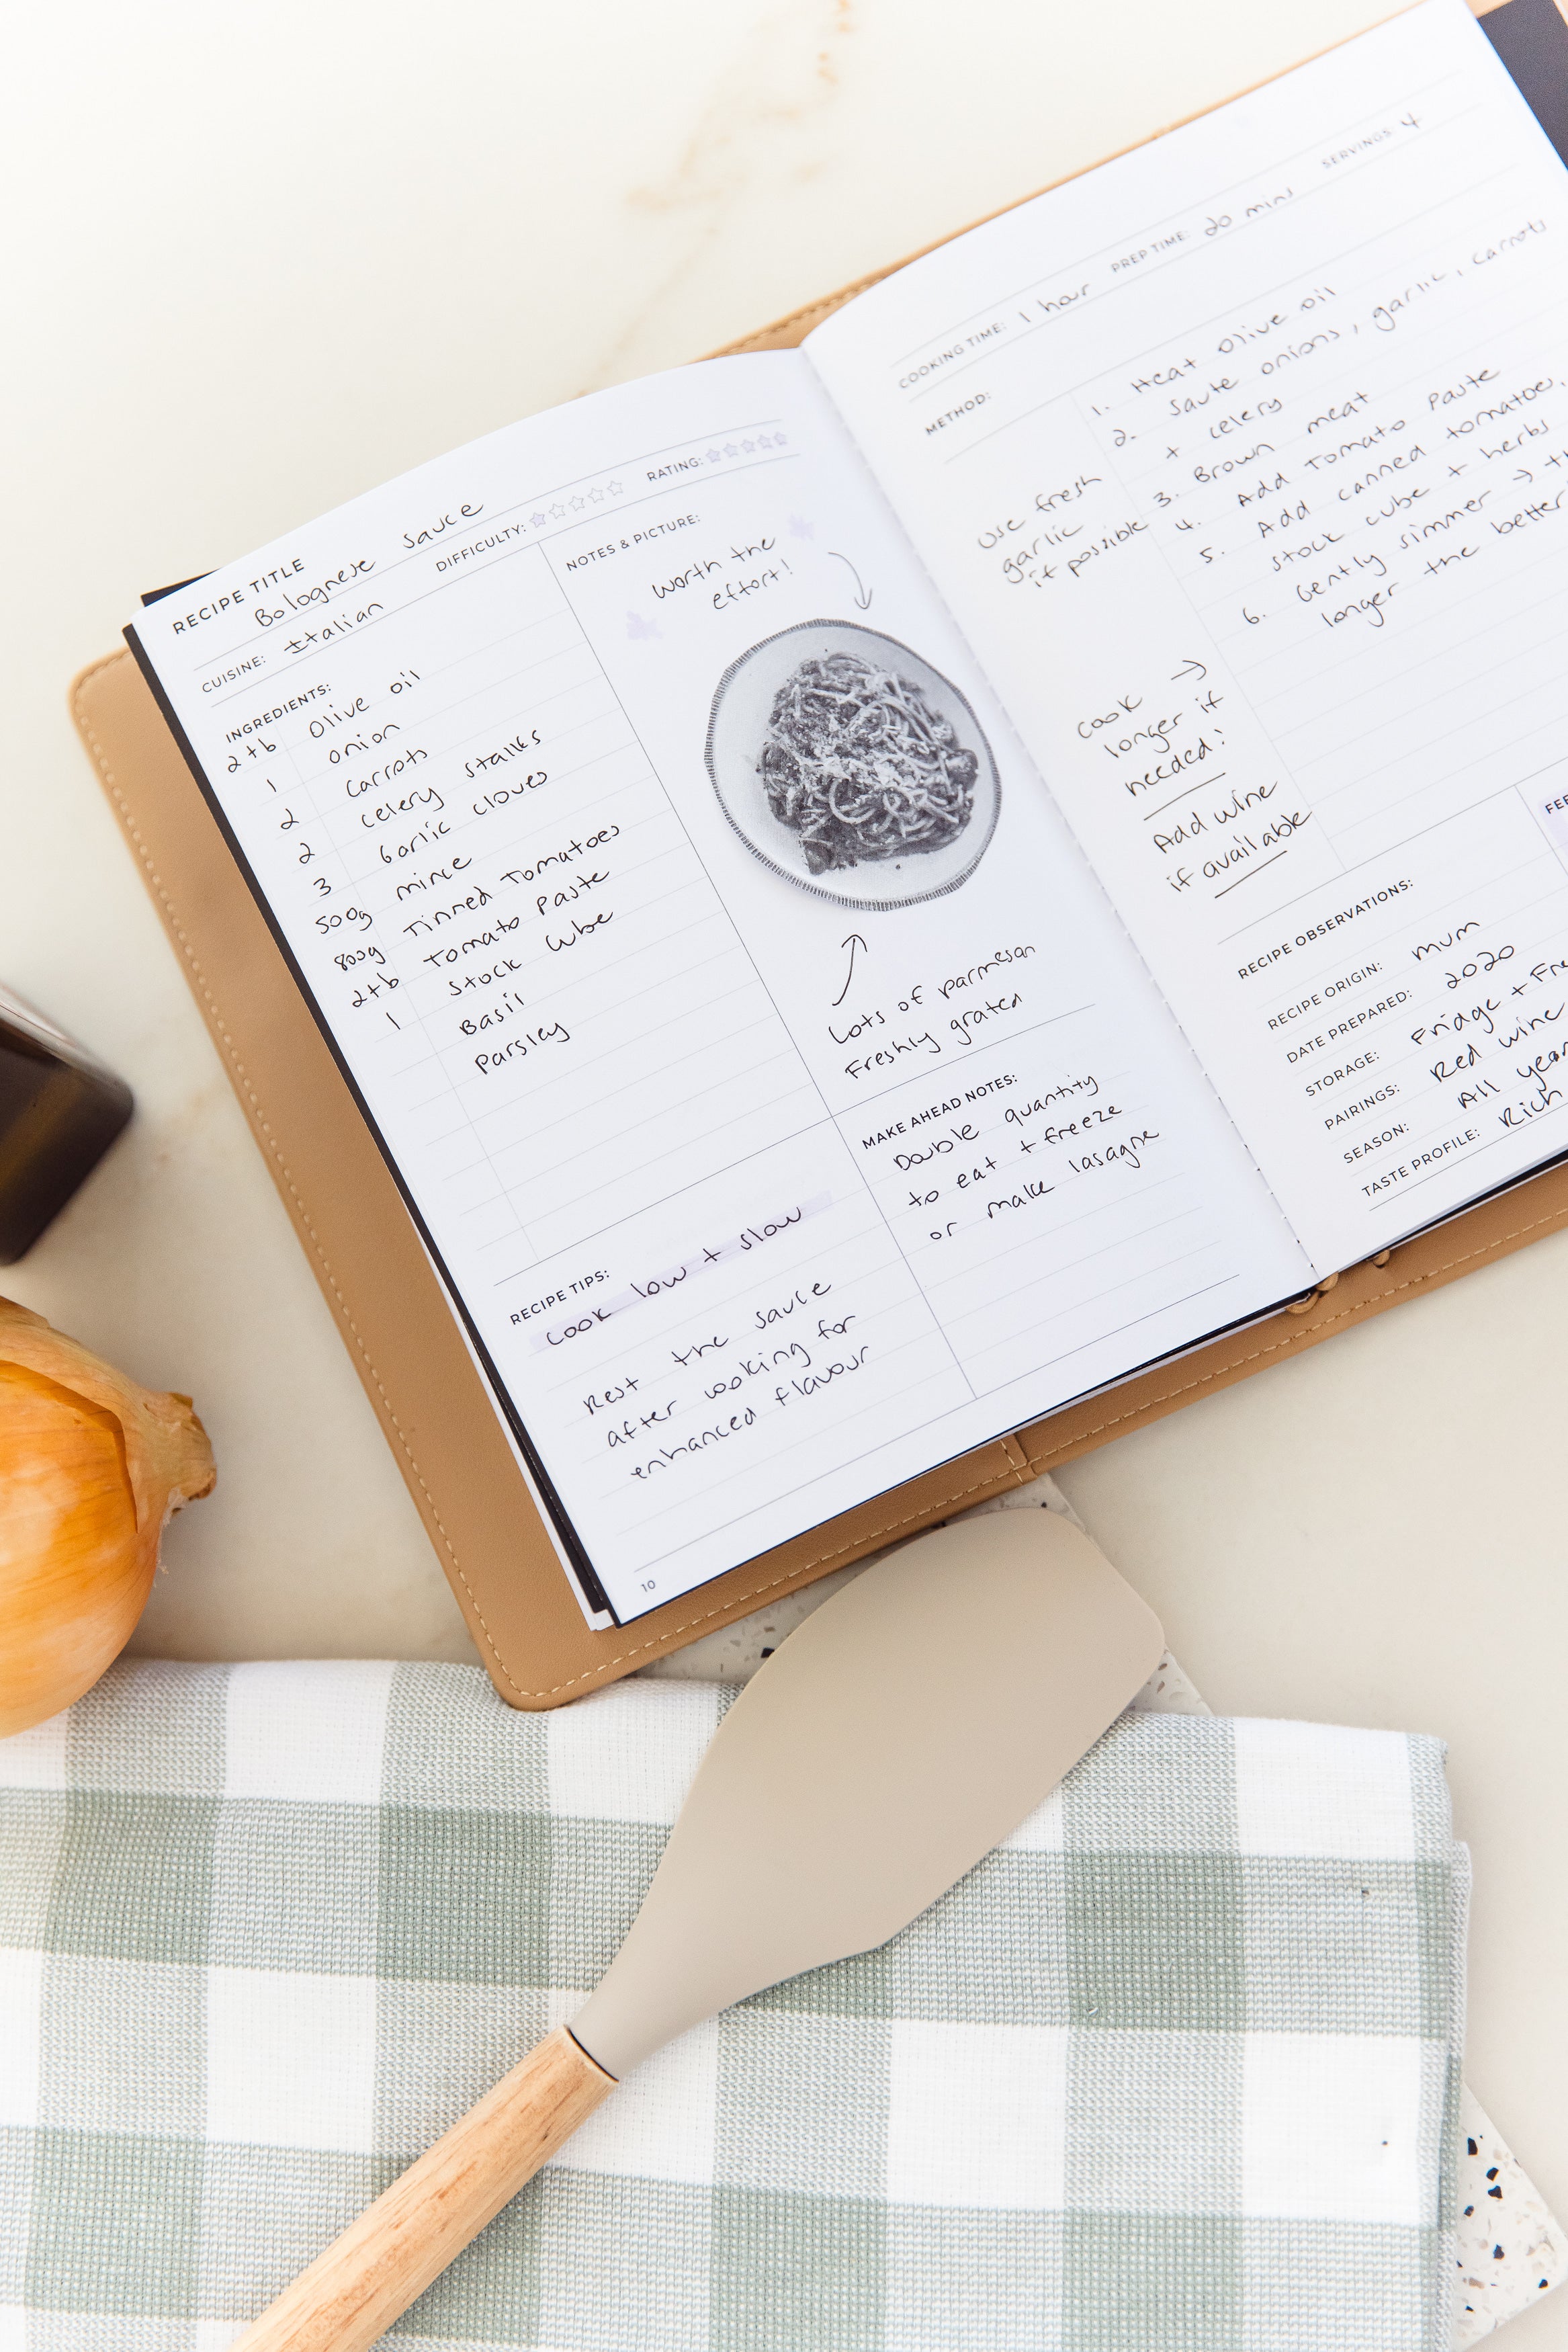 RECIPE TITLE
Bolognese Sauce
CUISINE: Italian
DIFFICULTY:
RATING:
INGREDIENTS:
2tb Olive oil
1 onion
2 carrots
2 celery stalks
3 Garlic cloves
500g mince
800g Tinned Tomatoes
2tb Tomato Paste
1 Stock cube
Basil
Parsley
NOTES & PICTURE:
Worth the
effort!
Lots of parmesan
Freshly grated
RECIPE TIPS:
Cook low + slow
Rest the sauce
after cooking for
enhanced flavour
MAKE AHEAD NOTES:
Double quantity
to eat + freeze
or make lasagne
10
COOKING TIME: 1 hour
PREP TIME: 20 mins
SERVINGS: 4
METHOD:
1. Heat Olive oil
2. Saute onions, garlic, carrots
+ celery
3. Brown meat
4. Add Tomato Paste
5. Add canned tomatoes,
stock cube + herbs
6. Gently simmer →
longer the better
Use fresh
garlic
if possible
Cook →
longer if
needed!
Add wine
if available
RECIPE OBSERVATIONS:
RECIPE ORIGIN: mum
DATE PREPARED: 2020
STORAGE: Fridge +
PAIRINGS: Red wine
SEASON: All year
TASTE PROFILE: Rich